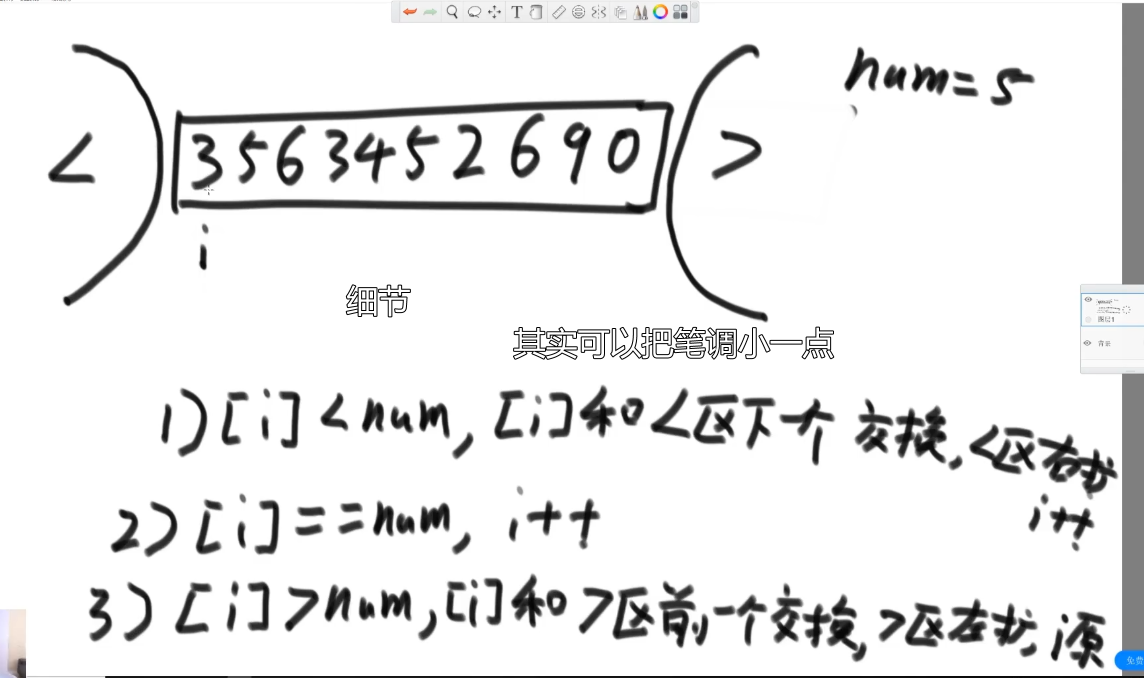 num=5
< 3 5 6 3 4 5 2 6 9 0 >
i
细节
其实可以把笔调小一点
1) [i] < num, [i]和<区下一个 交换, <区右扩
i++
2) [i] == num, i++
3) [i] > num, [i]和 >区前一个交换, >区左扩, i原
图层1
背景
免费